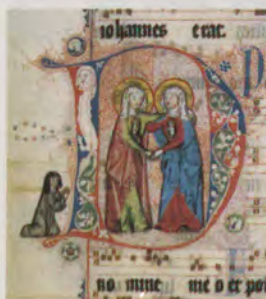 iohannes erat.
no mine me o et po